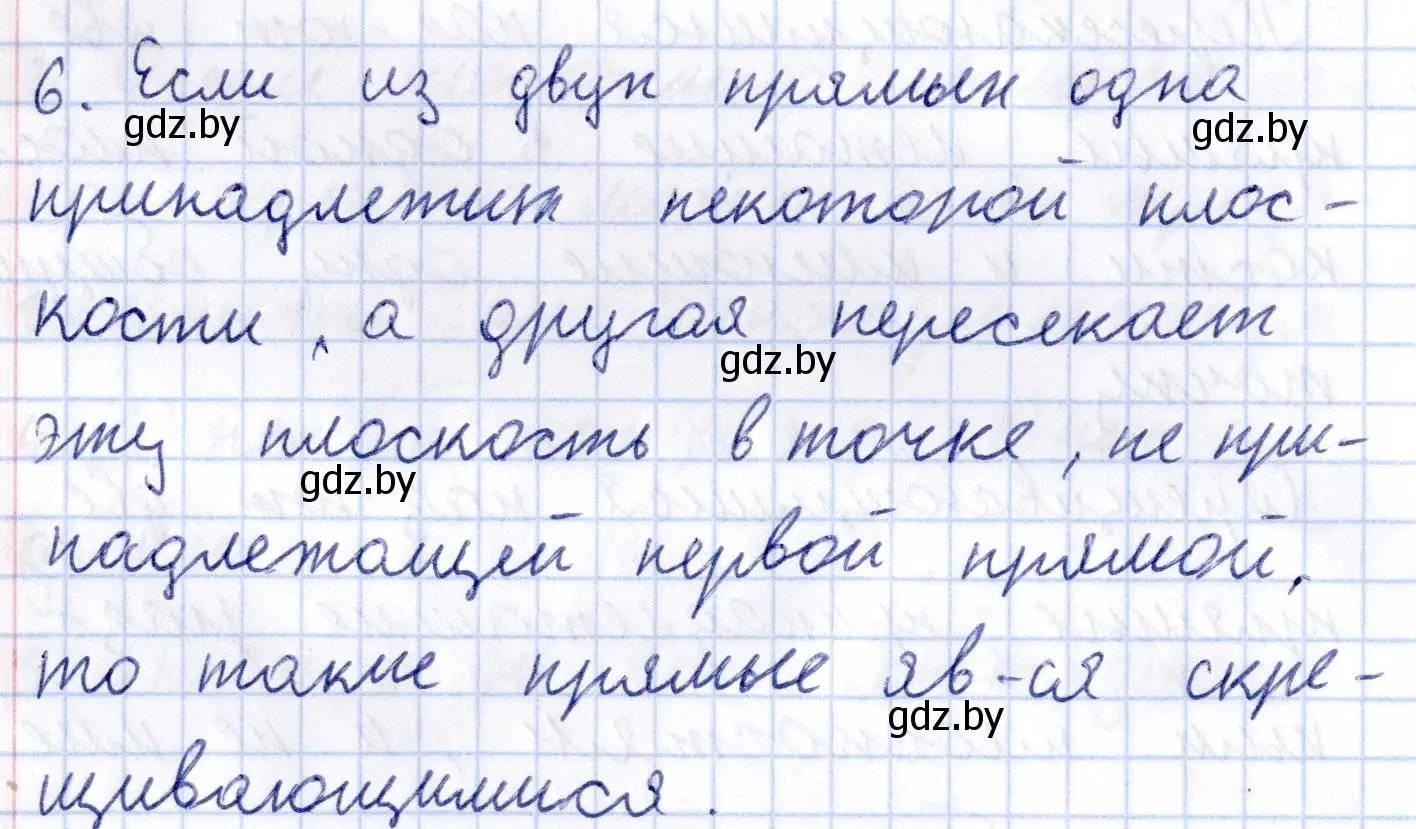 6. Если из двух прямых одна
gdz.by gdz.by
принадлежит некоторой плос-
кости, а другая пересекает
gdz.by
эту плоскость в точке, не при-
gdz.by
надлежащей первой прямой,
то такие прямые яв-ся скре-
gdz.by
щивающимися.